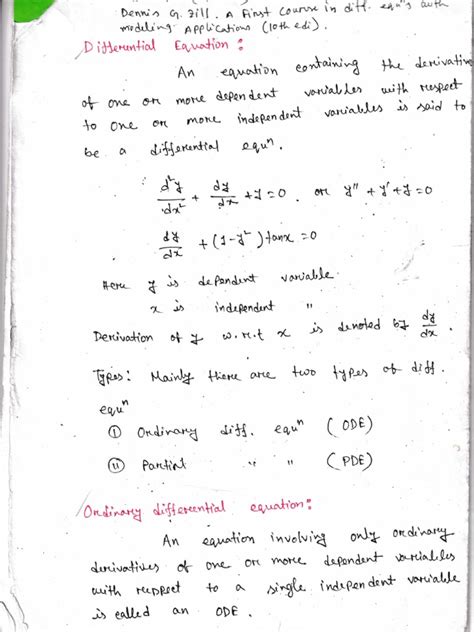 Dennis G. Zill. A First Course in diff. equⁿs with
modeling Applications (10th edi).
Differential Equation :
An equation containing the derivative
of one or more dependent variables with respect
to one or more independent variables is said to
be a differential equⁿ.
d²y/dx² + dy/dx + y = 0 . or y'' + y' + y = 0
dy/dx + (1-y²) tanx = 0
Here y is dependent variable.
x is independent "
Derivation of y w.r.t x is denoted by dy/dx .
Types: Mainly there are two types of diff.
equⁿ
(i) Ordinary diff. equⁿ (ODE)
(ii) Partial " " (PDE)
Ordinary differential equation :
An equation involving only ordinary
derivatives of one or more dependent variables
with respect to a single independent variable
is called an ODE .